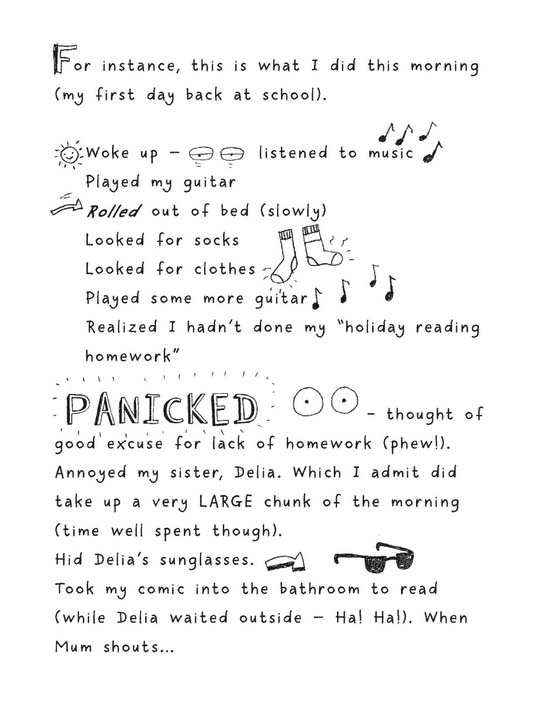 For instance, this is what I did this morning
(my first day back at school).
Woke up – listened to music
Played my guitar
Rolled out of bed (slowly)
Looked for socks
Looked for clothes
Played some more guitar
Realized I hadn't done my “holiday reading
homework”
PANICKED – thought of
good excuse for lack of homework (phew!).
Annoyed my sister, Delia. Which I admit did
take up a very LARGE chunk of the morning
(time well spent though).
Hid Delia's sunglasses.
Took my comic into the bathroom to read
(while Delia waited outside – Ha! Ha!). When
Mum shouts...